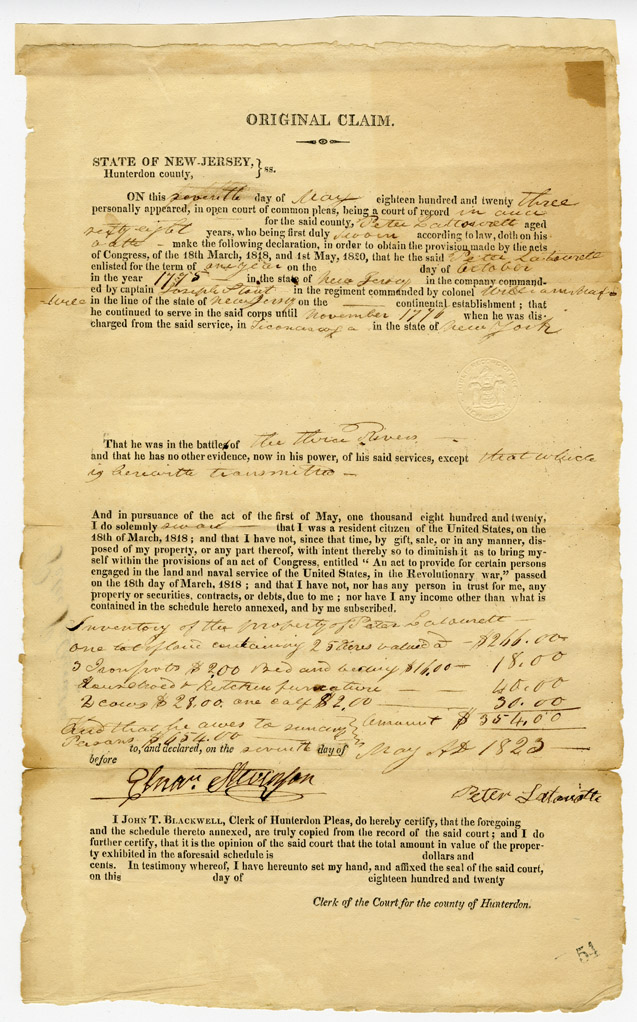 ORIGINAL CLAIM.
STATE OF NEW-JERSEY,
Hunterdon county, } ss.
ON this seventh day of May eighteen hundred and twenty three
personally appeared, in open court of common pleas, being a court of record in and
for the said county, Peter Latourett aged
sixty eight years, who being first duly sworn according to law, doth on his
oath — make the following declaration, in order to obtain the provision made by the acts
of Congress, of the 18th March, 1818, and 1st May, 1820, that he the said Peter Latourett
enlisted for the term of one year on the day of October
in the year 1775 in the state of New Jersey in the company command-
ed by captain Joseph Stout in the regiment commanded by colonel William Max-
-will in the line of the state of New Jersey on the continental establishment ; that
he continued to serve in the said corps until November 1776 when he was dis-
charged from the said service, in Ticonderoga in the state of New York
That he was in the battle of the three Rivers —
and that he has no other evidence, now in his power, of his said services, except that which
is herewith transmitted —
And in pursuance of the act of the first of May, one thousand eight hundred and twenty,
I do solemnly swear — that I was a resident citizen of the United States, on the
18th of March, 1818 ; and that I have not, since that time, by gift, sale, or in any manner, dis-
posed of my property, or any part thereof, with intent thereby so to diminish it as to bring my-
self within the provisions of an act of Congress, entitled “ An act to provide for certain persons
engaged in the land and naval service of the United States, in the Revolutionary war,” passed
on the 18th day of March, 1818 ; and that I have not, nor has any person in trust for me, any
property or securities, contracts, or debts, due to me ; nor have I any income other than what is
contained in the schedule hereto annexed, and by me subscribed.
Inventory of the property of Peter Latourett —
one lot of land containing 25 acres valued a — $266.00
3 Iron pots $2.00 Bed and beding $16.00 — 18.00
Household & Kitchin furnature — 40.00
2 cows $28.00, one calf $2.00 — 30.00
And that he owes to sundry } Amount $354.00
Persons $454.00
to, and declared, on the seventh day of May AD 1823 —
before
Stevenson
Peter Latourette
I JOHN T. BLACKWELL, Clerk of Hunterdon Pleas, do hereby certify, that the foregoing
and the schedule thereto annexed, are truly copied from the record of the said court ; and I do
further certify, that it is the opinion of the said court that the total amount in value of the proper-
ty exhibited in the aforesaid schedule is dollars and
cents. In testimony whereof, I have hereunto set my hand, and affixed the seal of the said court,
on this day of eighteen hundred and twenty
Clerk of the Court for the county of Hunterdon.
51